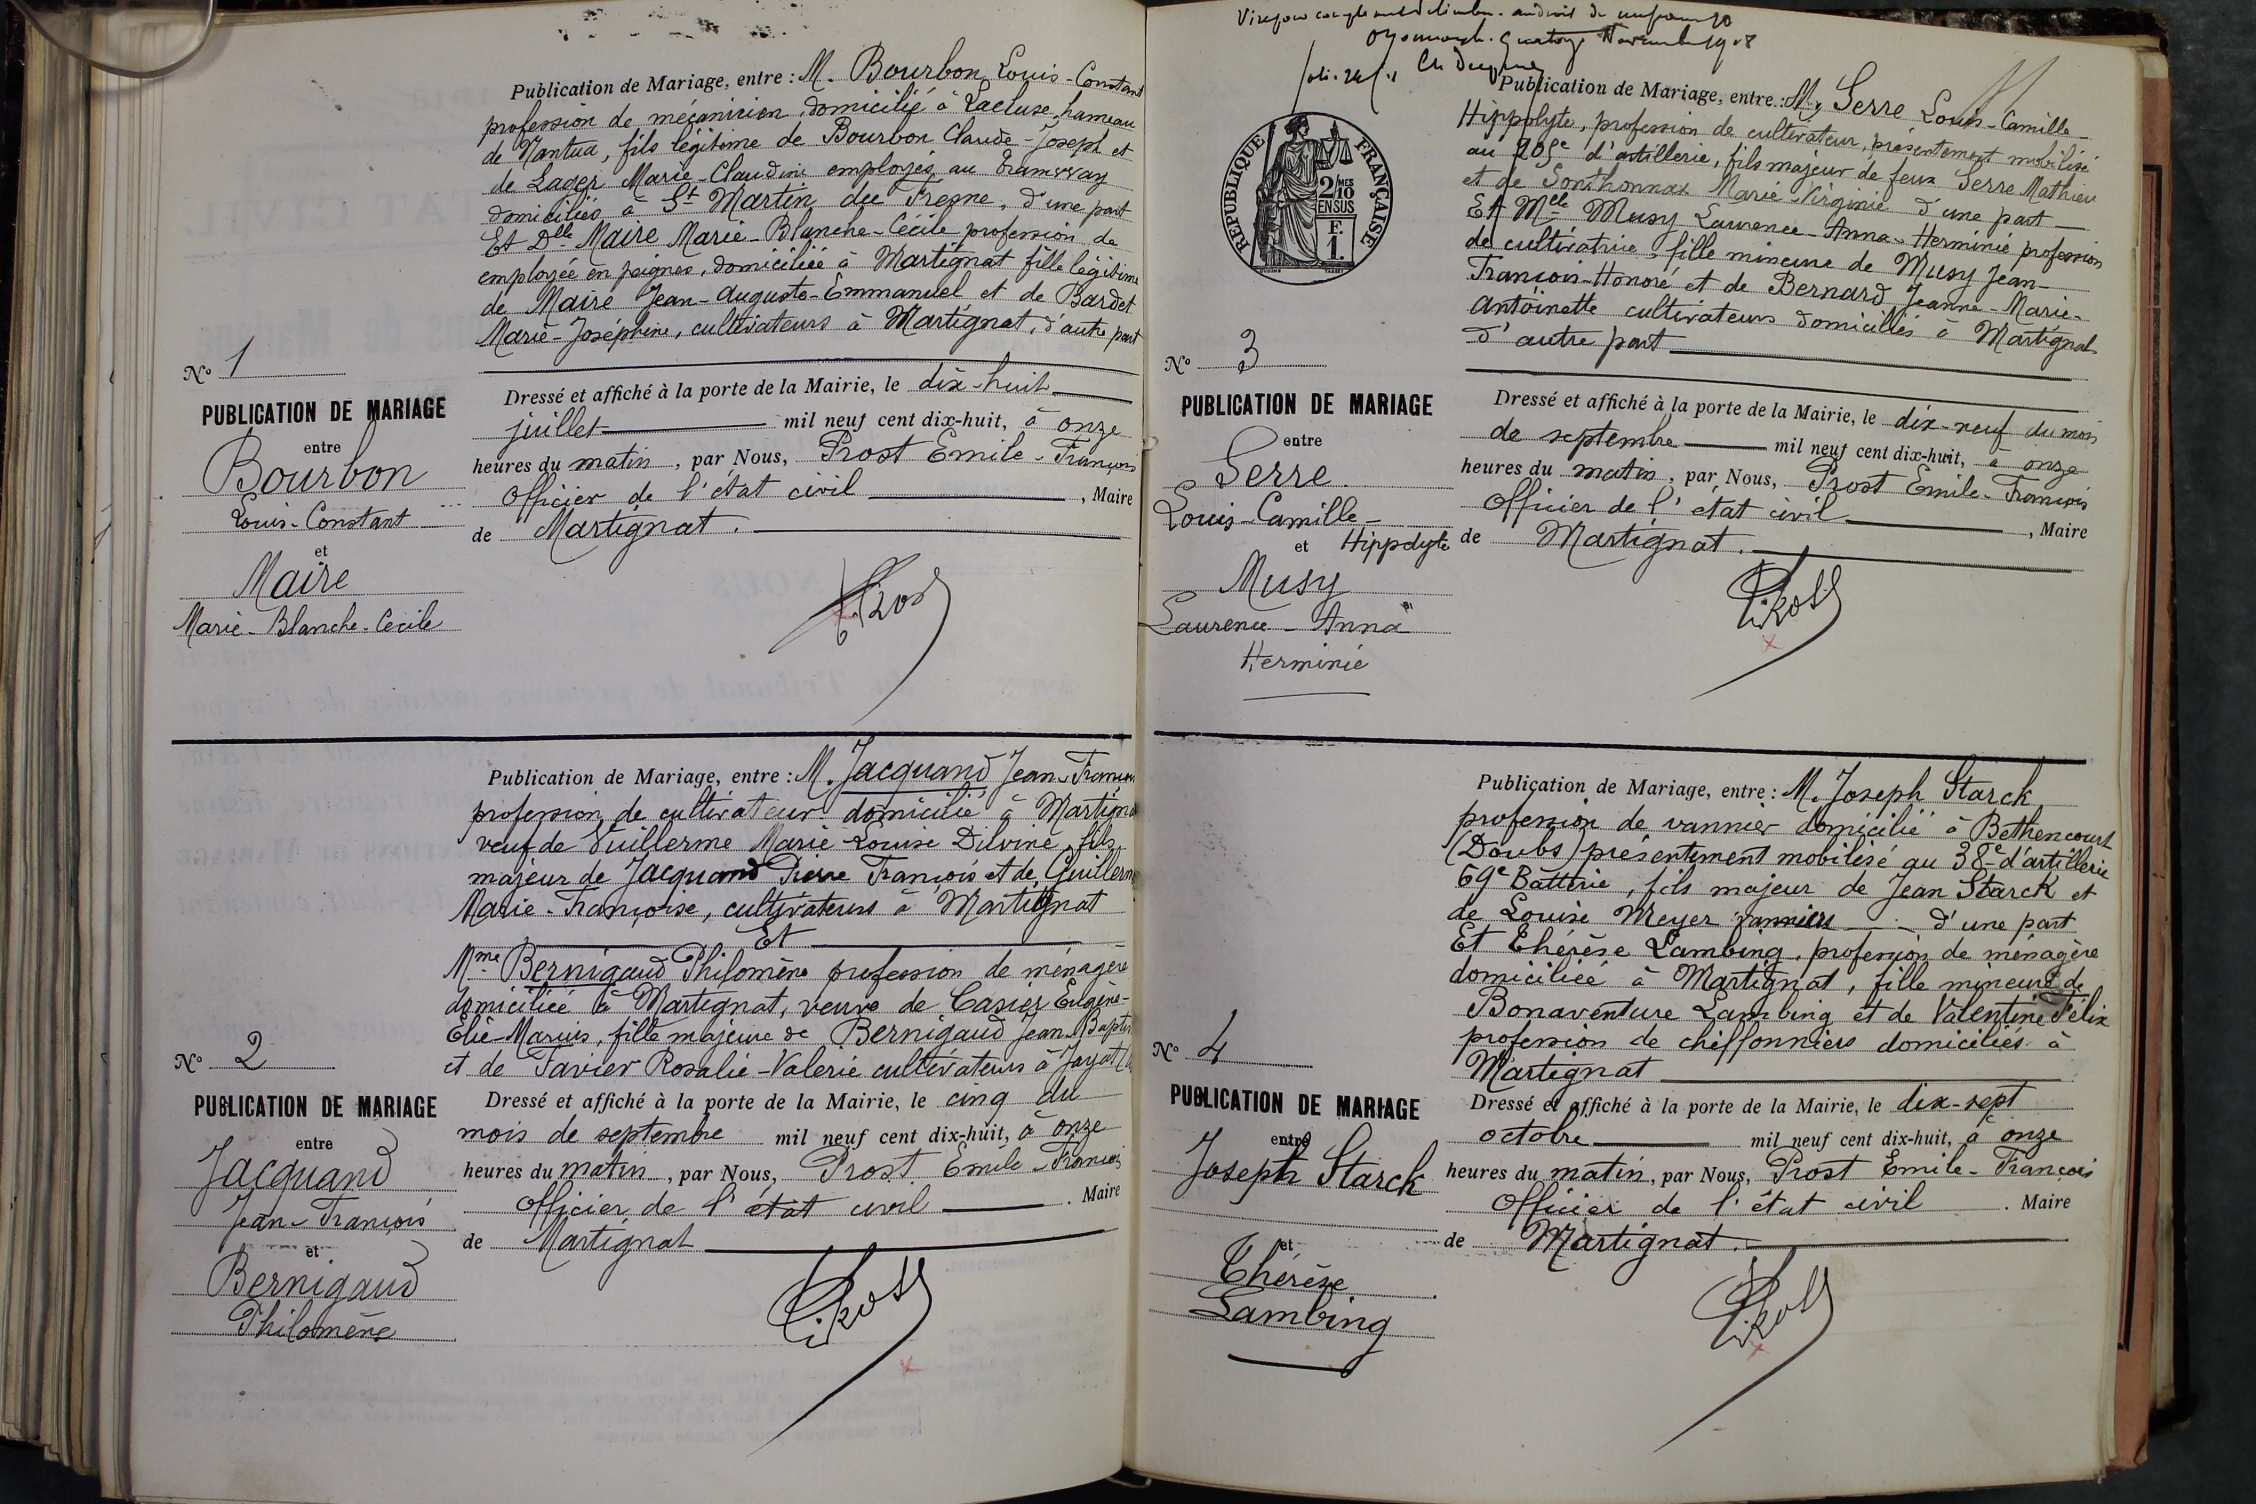 Publication de Mariage, entre : M. Bourbon Louis-Constant
profession de mécanicien, domicilié à Lacluse, hameau
de Nantua, fils légitime de Bourbon Claude-Joseph et
de Lager Marie-Claudine employés au tramway
domiciliés à St Martin du Fresne, d'une part
Et Dlle Maire Marie-Blanche-Cécile profession de
employée en peignes, domiciliée à Martignat fille légitime
de Maire Jean-Auguste-Emmanuel et de Bardet
Marie-Joséphine, cultivateurs à Martignat, d'autre part
N° 1
PUBLICATION DE MARIAGE
entre
Bourbon
Louis-Constant
et
Maire
Marie-Blanche-Cécile
Dressé et affiché à la porte de la Mairie, le dix-huit
juillet mil neuf cent dix-huit, à onze
heures du matin, par Nous, Prost Emile-François
Officier de l'état civil, Maire
de Martignat.
Prost
Publication de Mariage, entre : M. Jacquand Jean-François
profession de cultivateur domicilié à Martignat
veuf de Vuillerme Marie Louise Dilvine fils
majeur de Jacquand Pierre François et de Guillerme
Marie-Françoise, cultivateurs à Martignat
Et
Mme Bernigaud Philomène profession de ménagère
domiciliée à Martignat, veuve de Casier Eugène-
Elie-Marius, fille majeure de Bernigaud Jean-Baptiste
et de Favier Rosalie-Valerie cultivateurs à Jayat
N° 2
PUBLICATION DE MARIAGE
entre
Jacquand
Jean-François
et
Bernigaud
Philomène
Dressé et affiché à la porte de la Mairie, le cinq du
mois de septembre mil neuf cent dix-huit, à onze
heures du matin, par Nous, Prost Emile-François
Officier de l'état civil. Maire
de Martignat
Prost
Oyonnax le quatorze Novembre 1918
RÉPUBLIQUE FRANÇAISE
2/MES
10
EN SUS
F.
1.
Publication de Mariage, entre : M. Serre Louis-Camille-
Hippolyte, profession de cultivateur, présentement mobilisé
au 205e d'artillerie, fils majeur de feux Serre Mathieu
et de Sonthonnax Marie-Virginie d'une part
Et Melle Musy Laurence-Anna-Herminie profession
de cultivatrice, fille mineure de Musy Jean-
François-Honoré et de Bernard Jeanne-Marie-
Antoinette cultivateurs domiciliés à Martignat
d'autre part
N° 3
PUBLICATION DE MARIAGE
entre
Serre
Louis-Camille-
et Hippolyte
Musy
Laurence-Anna
Herminie
Dressé et affiché à la porte de la Mairie, le dix-neuf du mois
de septembre mil neuf cent dix-huit, à onze
heures du matin, par Nous, Prost Emile-François
Officier de l'état civil, Maire
de Martignat.
Prost
Publication de Mariage, entre : M. Joseph Starck
profession de vannier domicilié à Bethencourt
(Doubs) présentement mobilisé au 38e d'artillerie
69e Batterie, fils majeur de Jean Starck et
de Louise Meyer vanniers d'une part
Et Thérèse Lambing, profession de ménagère
domiciliée à Martignat, fille mineure de
Bonaventure Lambing et de Valentine Félix
profession de chiffonniers domiciliés à
Martignat
N° 4
PUBLICATION DE MARIAGE
entre
Joseph Starck
et
Thérèse
Lambing
Dressé et affiché à la porte de la Mairie, le dix-sept
octobre mil neuf cent dix-huit, à onze
heures du matin, par Nous, Prost Emile-François
Officier de l'état civil. Maire
de Martignat.
Prost